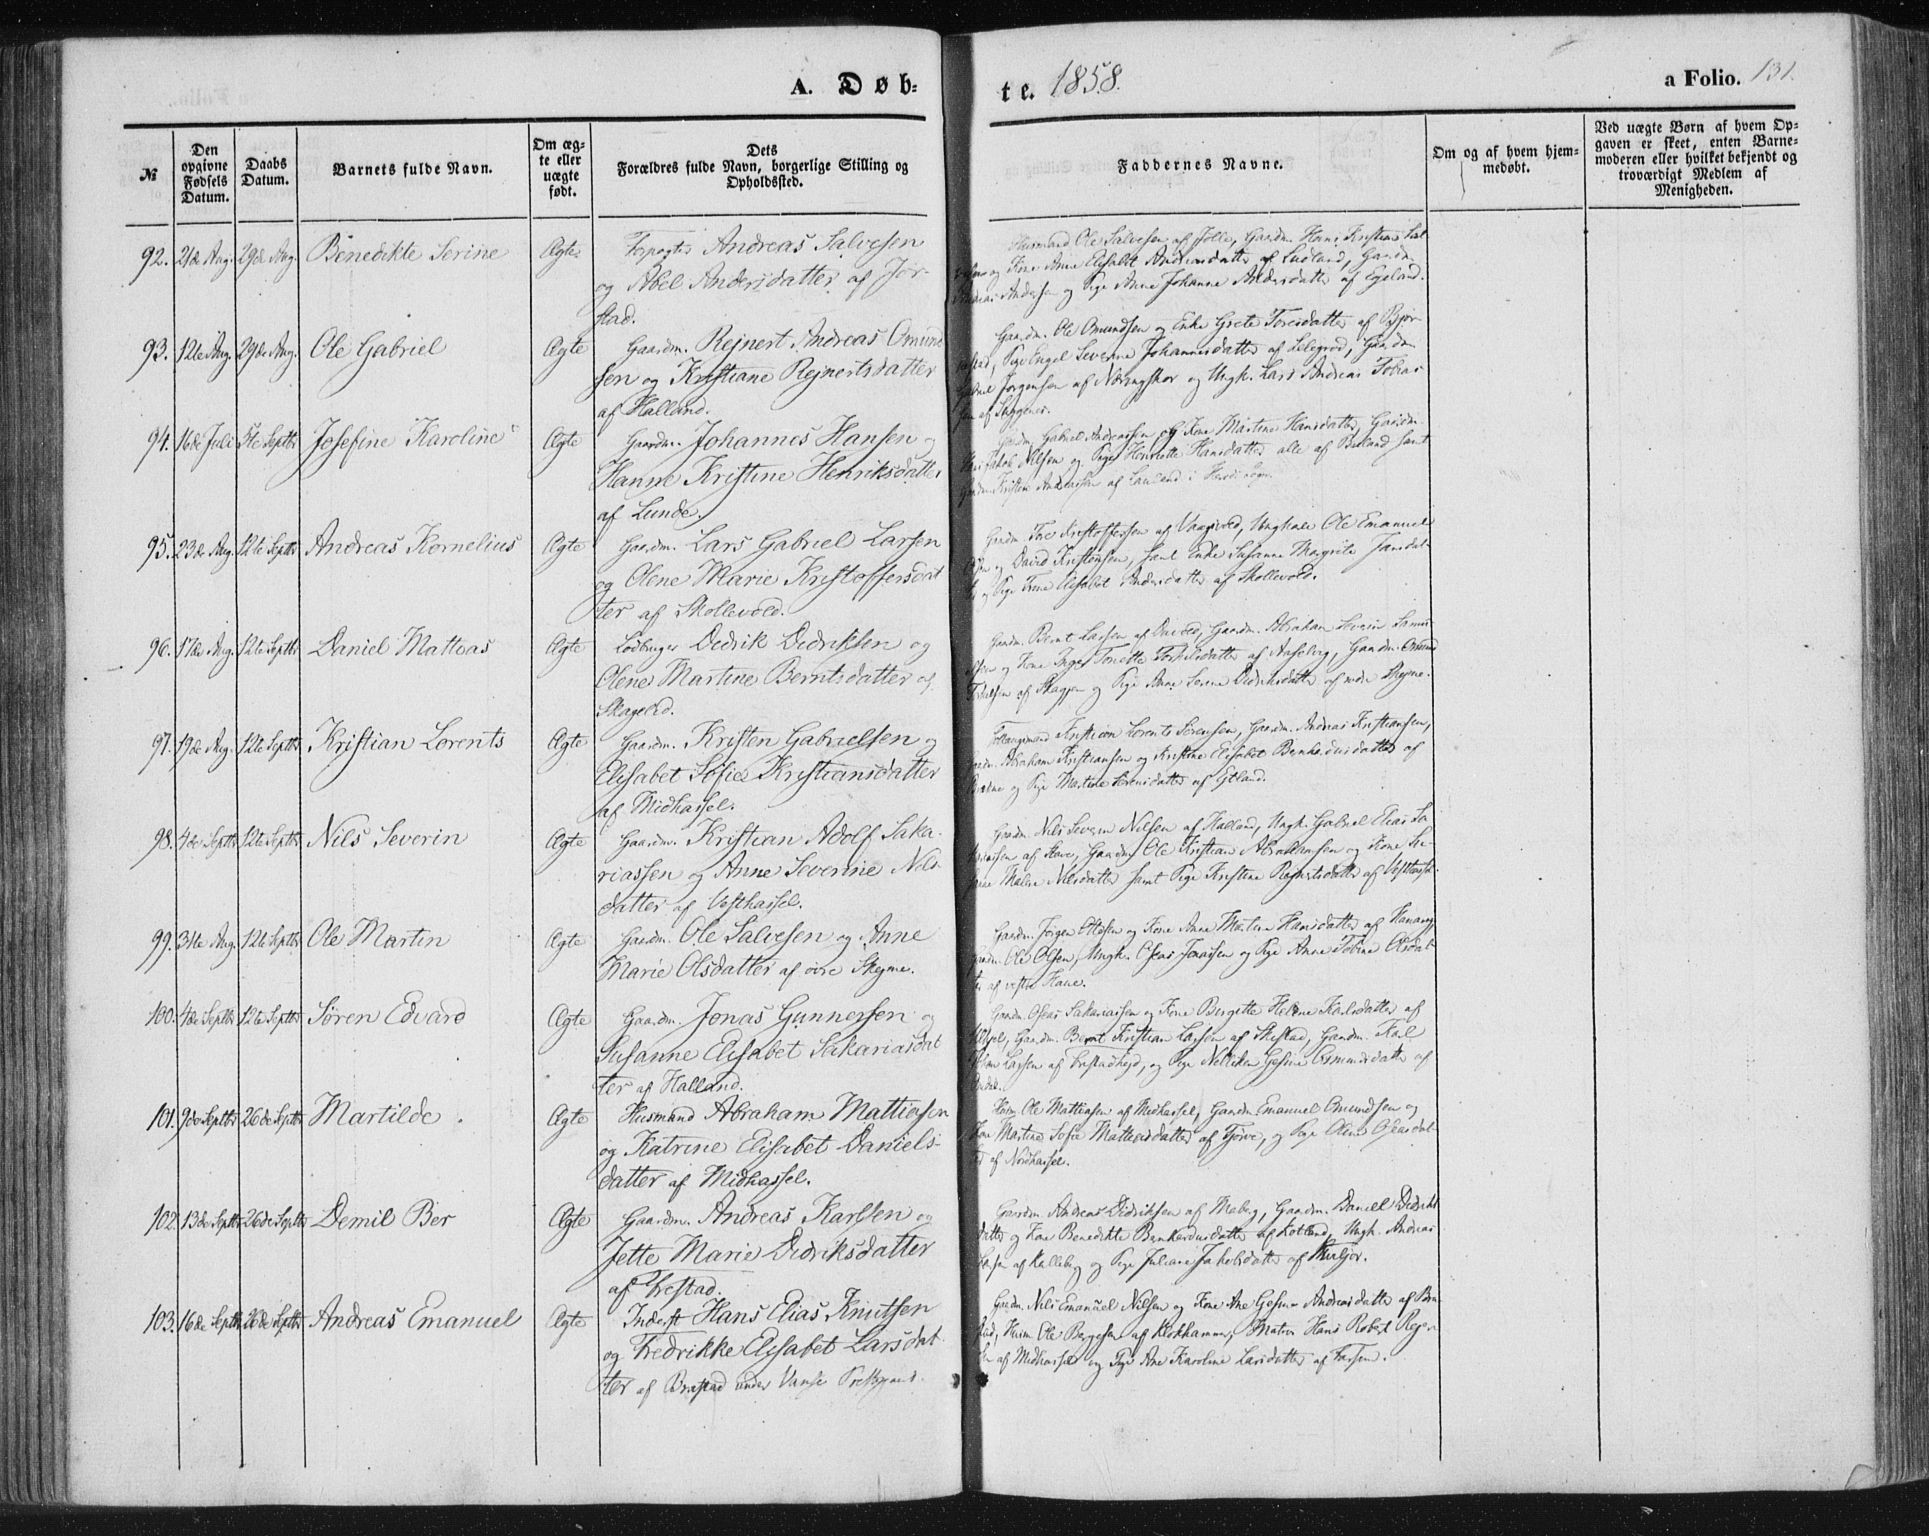 A. Døb-
te. 1858.
a Folio. 131.
№
Den opgivne Fødsels Datum.
Daabs Datum.
Barnets fulde Navn.
Om æg-te eller uægte født.
Dets Forældres fulde Navn, borgerlige Stilling og Opholdssted.
Faddernes Navne.
Om og af hvem hjem-medøbt.
Ved uægte Børn af hvem Op-gaven er skeet, enten Barne-moderen eller hvilket bekjendt og troværdigt Medlem af Menigheden.
92. 21de Aug. 29de Aug. Benedikte Serine Ægte Forpagter Andreas Salvesen
og Abel Andersdatter af Jør-
stad.
Husmand Ole Salvesen af Jølle, Gaardm. Hans Kristian
og Kone Anne Elisabet Andreasdatter af Sudland, Gaardm.
Andersen og Pige Anne Johanne Andersdatter af Egeland.
93. 12te Aug. 29de Aug. Ole Gabriel Ægte Gaardm. Rejnert Andreas Omund
sen og Kristiane Rejnertsdatter
af Halland.
Gaardm. Ole Omundsen og Enke Grete Toresdatter af
Pige Engel Severine Johannesdatter af Lilegrød, Gaardm
Gabriel Jørgensen af Næringskor og Ungk. Lars Andreas Tobias
sen af
94. 16de Juli 5te Septbr Josefine Karoline Ægte Gaardm. Johannes Hansen og
Hanne Kristine Henriksdatter
af Lunde.
Gaardm. Gabriel Andreassen og Kone Martine Hansdatter, Gaardm
Jakob Nilsen og Pige Henriette Hansdatter alle af Buland samt
Gaardm. Kristen Andreassen af Sauland i Herods Sogn.
95. 23de Aug. 12te Septbr Andreas Kornelius Ægte Gaardm. Lars Gabriel Larsen
og Olene Marie Kristoffersdat
ter af Skollevold.
Gaardm. Tore Kristoffersen af Vaagsvold, Ungkarle Ole Emanuel
og David Kristensen, samt Enke Susanne Margrite Jansdat-
ter og Pige Trine Elisabet Andersdatter af Skollevold.
96. 17de Aug. 12te Septbr Daniel Matteas Ægte Lodbruger Dedrik Dedriksen og
Olene Martine Berntsdatter af
Skageled.
Gaardm. Bernt Larsen af Ore, Gaardm. Abraham Severin Samu-
elsen og Kone Inger Tonette Torkilsdatter af Aaseberg, Gaardm. Omund
af Skaggen og Pige Anne Serine Dedriksdatter af nedre Skeyme.
97. 19de Aug. 12te Septbr Kristian Lorents Ægte Gaardm. Kristen Gabrielsen og
Elisabet Sofie Kristiansdatter
af Midhassel.
Forlangsmand Kristian Lorents Sørensen, Gaardm. Andreas Kristiansen,
Gaardm. Abraham Kristiansen og Kristine Elisabet Bernhardusdatter af
og Pige Martine Sørensdatter af Etland.
98. 4de Septbr 12te Septbr Nils Severin Ægte Gaardm. Kristian Adolf Saka-
riassen og Anne Severine Nils-
datter af Vesthassel.
Gaardm. Nils Severin Nilsen af Halland, Ungk. Gabriel Elias Sa
kariassen af Stave, Gaardm. Ole Kristian Abrahamsen og Kone Se-
rine Malene Nilsdatter samt Pige Kristine Rejnertsdatter af Vesthassel.
99. 31te Aug. 12te Septbr Ole Martin Ægte Gaardm. Ole Salvesen og Anne
Marie Olsdatter af øvre Skeyme.
Gaardm. Jørgen Ollesen og Kone Anne Martine Hansdatter af Hanang
Gaardm. Ole Olsen, Ungk. Oseas Jonassen og Pige Anne Tobine Olsdat-
ter af vestre Haue.
100. 4de Septbr 12te Septbr Søren Edvard Ægte Gaardm. Jonas Gunnersen og
Susanne Elisabet Sakariasdat
ter af Halland.
Gaardm Oseas Sakariassen og Kone Bergitte Helene Karlsdatter af
Gaardm. Bernt Kristian Larsen af Skestad, Gaardm. Karl
Johan Larsen af Brestadhejd, og Pige Nellikea Gesine Osmundsdatter af
101. 9de Septbr 26de Septbr Martilde. Ægte Husmand Abraham Mattiassen
og Katrine Elisabet Daniels-
datter af Midhassel.
Husm. Ole Mattiassen af Midhassel, Gaardm Emanuel Omundsen og
Kone Martine Sofie Matteasdatter af Tjørve, og Pige Oline Oseasdat-
ter af Nordhassel.
102. 13de Septbr 26de Septbr Demil Ber Ægte Gaardm. Andreas Karlsen og
Jette Marie Didriksdatter
af Vrestad.
Gaardm. Andreas Didriksen af Maberg, Gaardm. Daniel Didriks
og Kone Benedikte Bernhardusdatter af Kotland, Ungk. Andreas
af Kalleberg og Pige Juliane Jakobsdatter af
103. 16de Septbr 26de Septbr Andreas Emanuel Ægte Inderst Hans Elias Knutsen
og Fredrikke Elisabet Larsdat
ter af Brastad under Vanse Prestegaard.
Gaardm. Nils Emanuel Nilsen og Kone Ane Gesine Andreasdatter af Bre-
stad, Husm. Ole Børgesen af Klokhammer, Matros Hans Robert Rejer
sen af Midhassel og Pige Ane Karoline Larsdatter af Farsun.